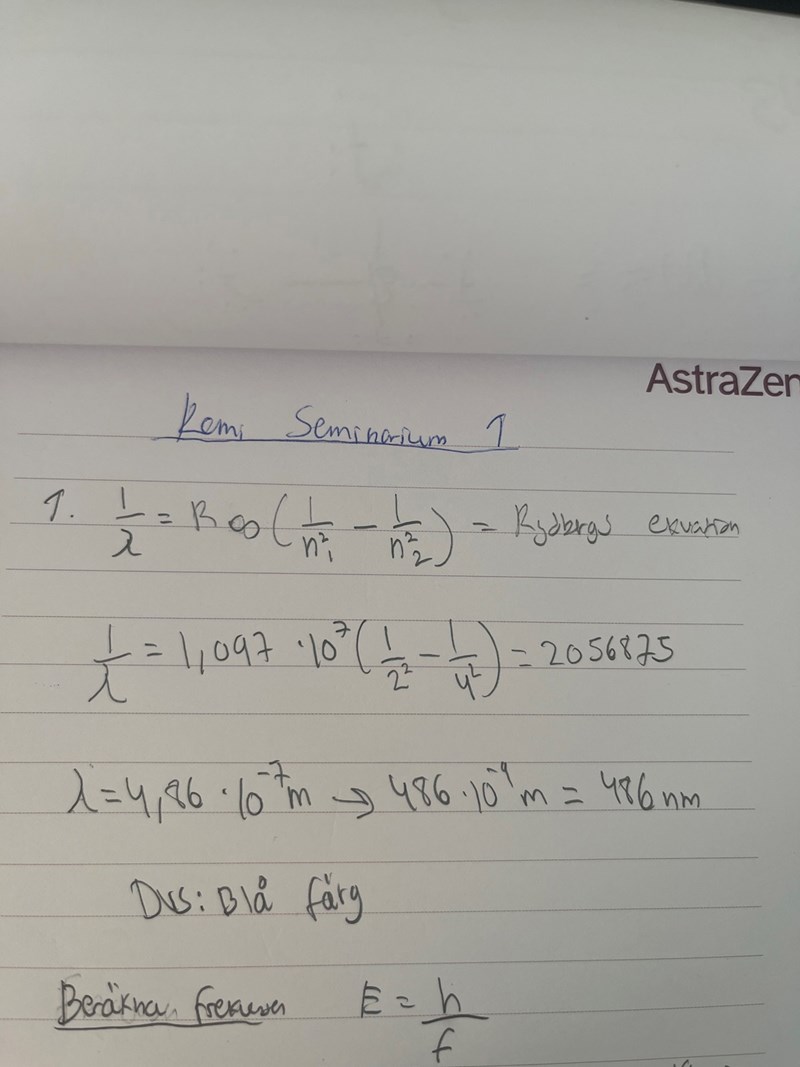 AstraZen
Kemi Seminarium 1
1. 1/λ = R∞ (1/n₁² − 1/n₂²) = Rydbergs ekvation
1/λ = 1,097 · 10⁷ (1/2² − 1/4²) = 2056875
λ = 4,86 · 10⁻⁷ m → 486 · 10⁻⁹ m = 486 nm
Dvs: Blå färg
Beräkna frekvensen E = h/f